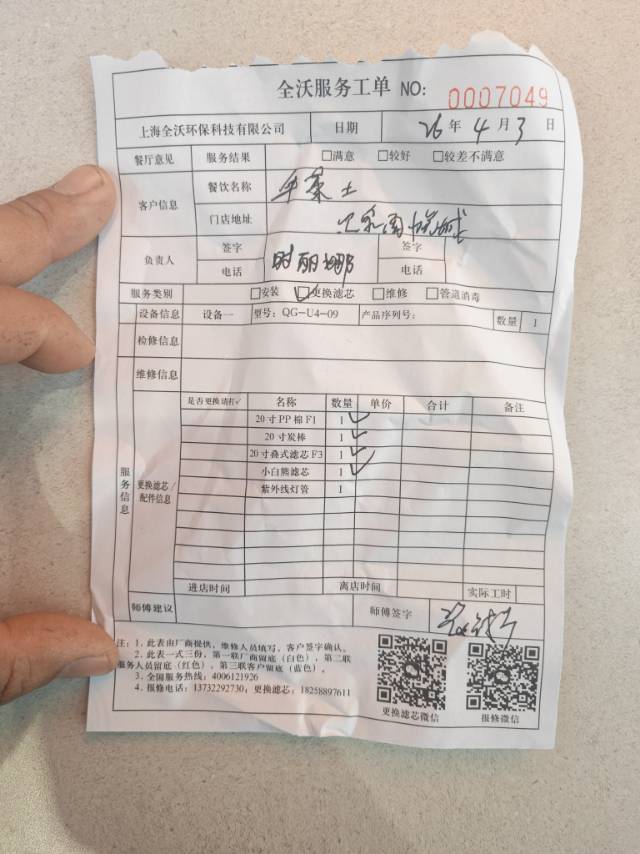 全沃服务工单 NO: 0007049
上海全沃环保科技有限公司 日期 26年4月3日
餐厅意见 服务结果 □满意 □较好 □较差不满意
客户信息 餐饮名称
门店地址
负责人 签字 时丽娜 签字
电话 电话
服务类别 □安装 □更换滤芯 □维修 □管道消毒
设备信息 设备一 型号: QG-U4-09 产品序列号: 数量 1
检修信息
维修信息
服务信息 更换滤芯/配件信息
是否更换请打✓ 名称 数量 单价 合计 备注
20寸PP棉F1 1 ✓
20寸炭棒 1 ✓
20寸叠式滤芯F3 1 ✓
小白熊滤芯 1 ✓
紫外线灯管 1
进店时间 离店时间 实际工时
师傅建议 师傅签字
注: 1、此表由厂商提供, 维修人员填写, 客户签字确认。
2、此表一式三份, 第一联厂商留底(白色), 第二联
服务人员留底(红色), 第三联客户留底(蓝色)。
3、全国服务热线: 4006121926
4、报修电话: 13732292730; 更换滤芯: 18258897611
更换滤芯微信 报修微信